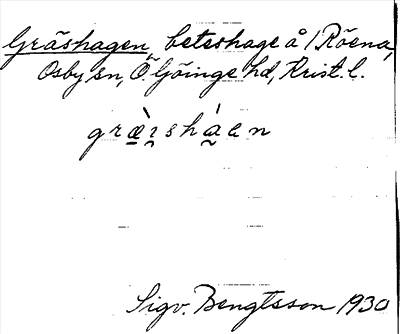 Gräshagen, beteshage å 1 Röena,
Osby sn, Ö. Göinge hd, Krist. l.
græ̀ɪshá̱en
Sigv. Bengtsson 1930